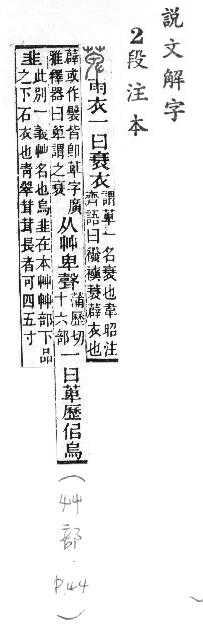 說文解字
2段注本
萆 雨衣一曰衰衣
謂萆一名衰也韋昭注
齊語曰襏襫蓑薜衣也
薜或作襞皆卽萆字廣
雅釋器曰萆謂之衰
从艸卑聲
蒲歷切
十六部
一曰萆歷佀烏
韭
此別一義艸名也烏韭在本艸艸部下品
之下石衣也靑翠茸茸長者可四五寸
(艸部·P44)